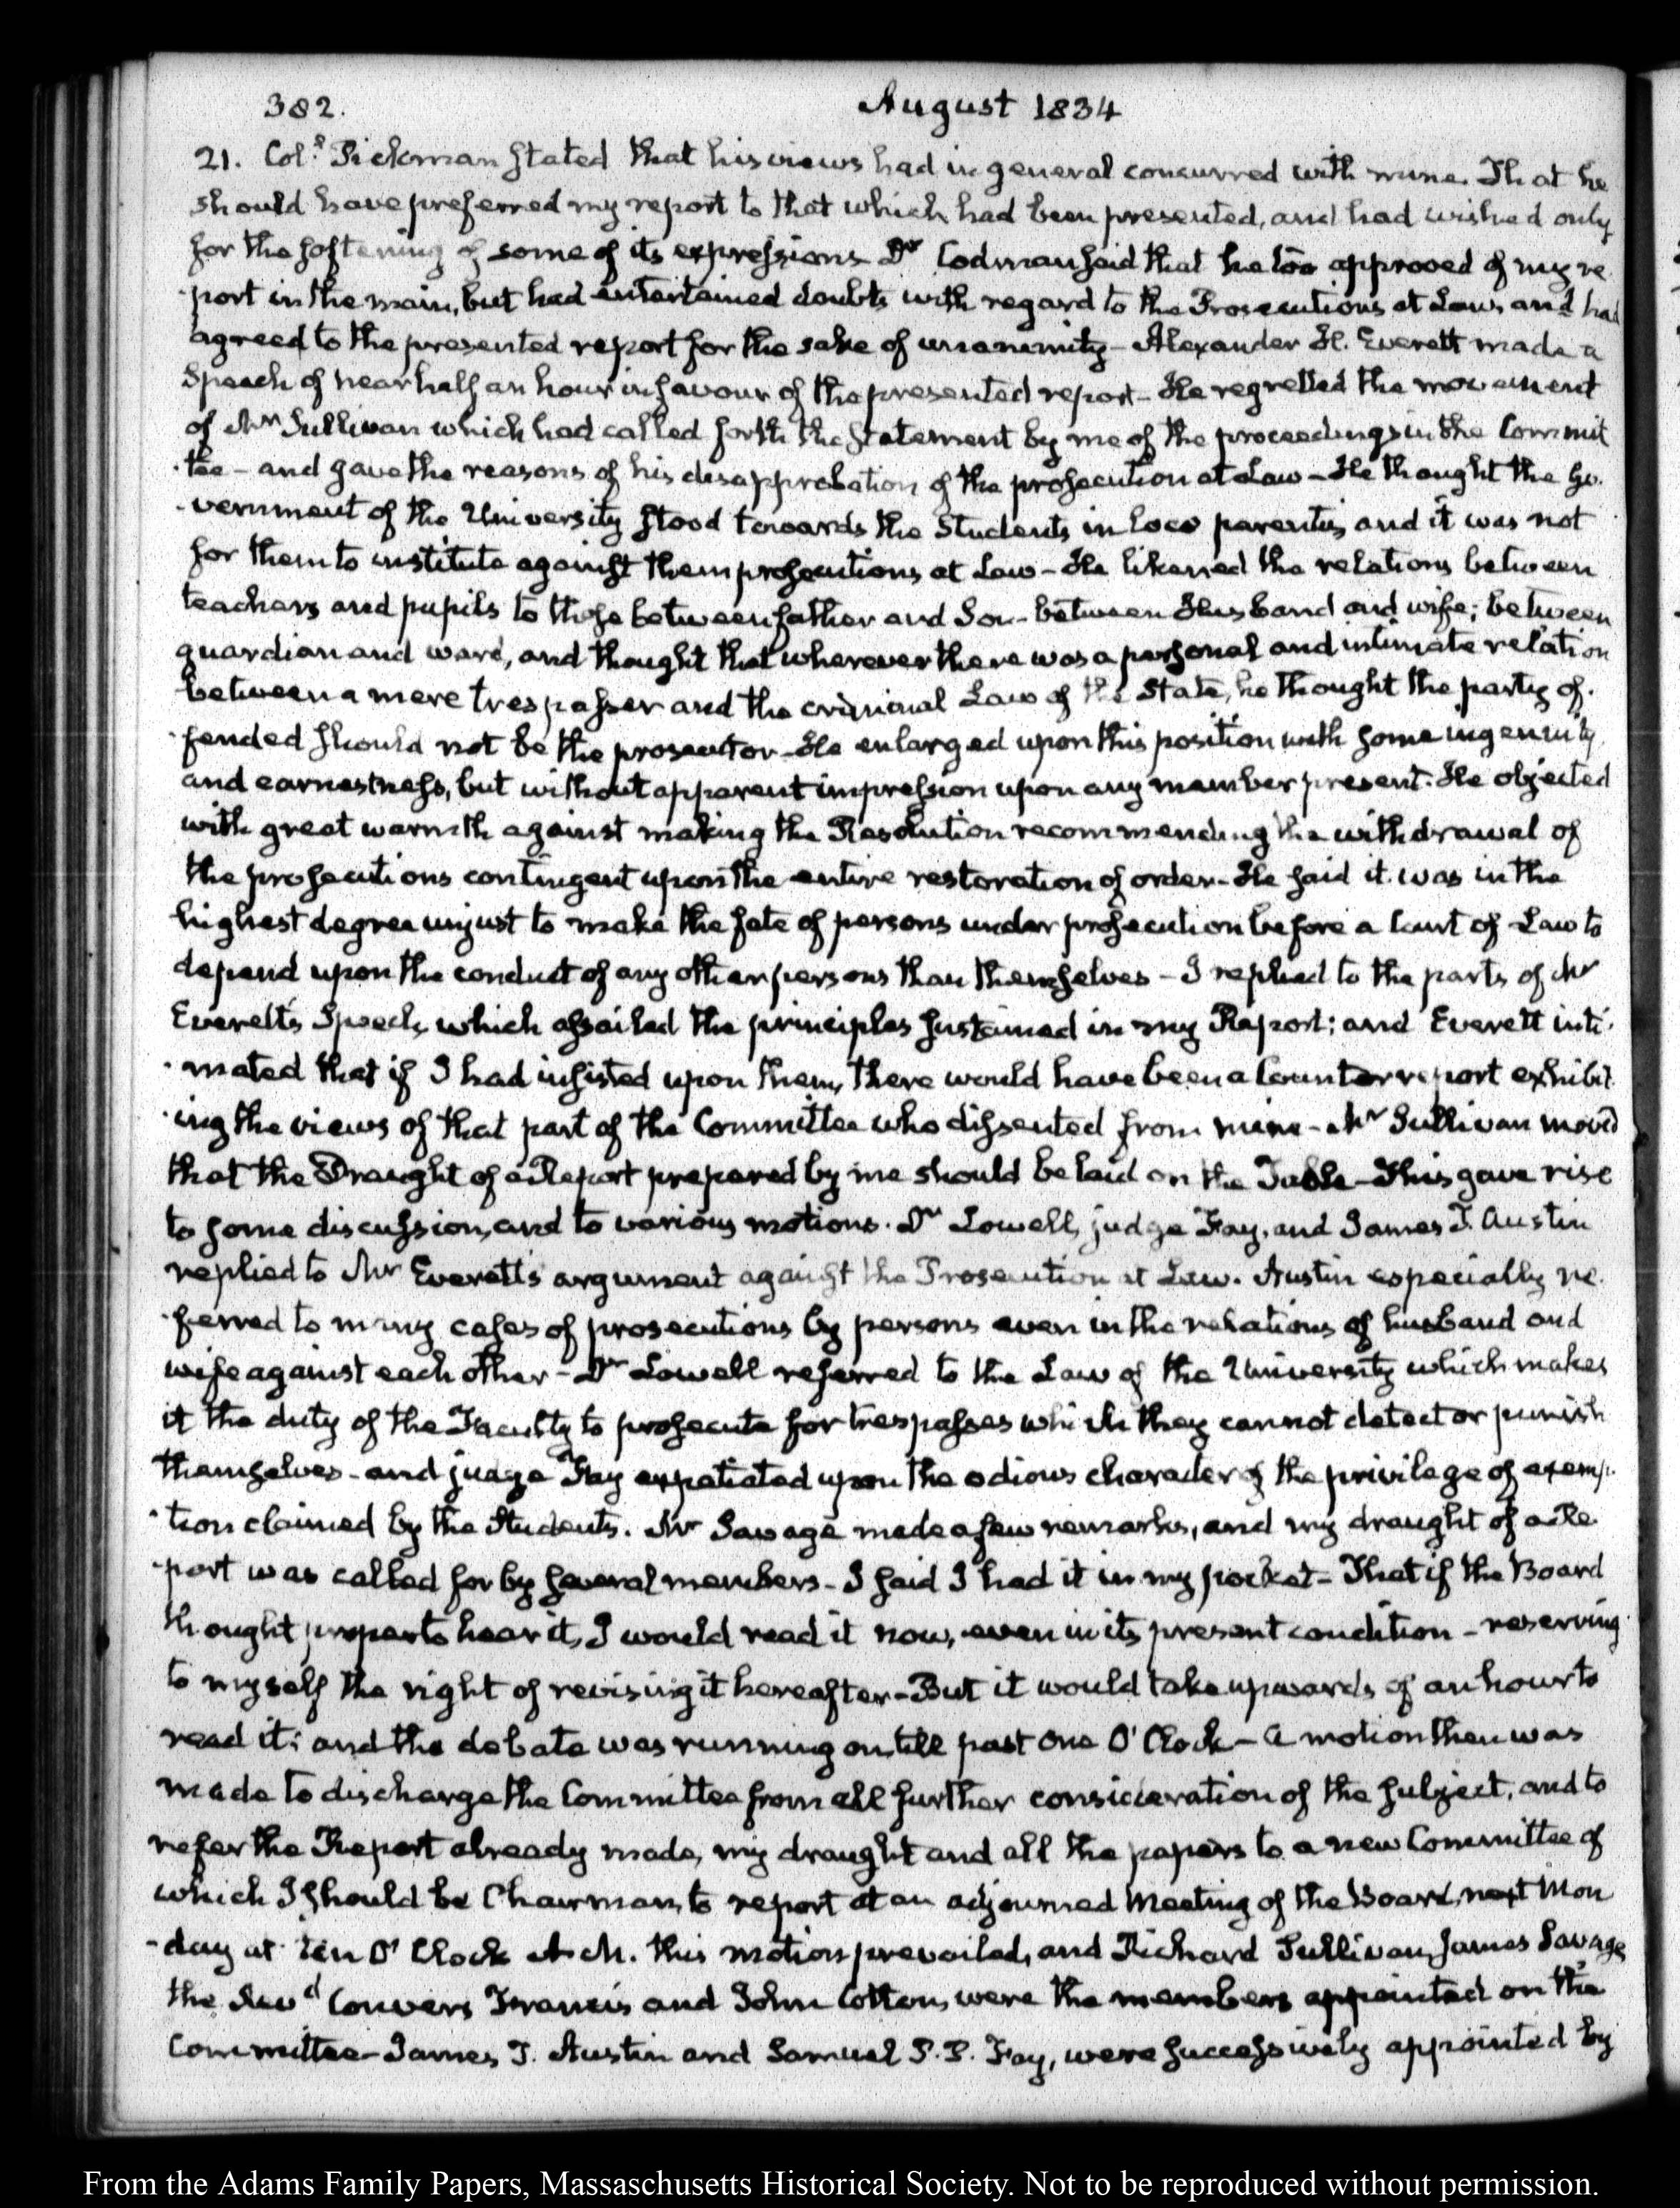 382. August 1834
21. Col.l Pickman stated that his views had in general concurred with mine. That he
should have preferred my report to that which had been presented, and had wished only
for the softening of some of its expressions. Dr Codman said that he too approved of my re
port in the main, but had entertained doubts with regard to the Prosecutions at Law, and had
agreed to the presented report for the sake of unanimity - Alexander H. Everett made a
Speech of near half an hour in favour of the presented report - He regretted the movement
of Mr Sullivan which had called forth the statement by me of the proceedings in the Commit
tee - and gave the reasons of his disapprobation of the prosecution at Law - He thought the Go-
-vernment of the University stood towards the Students in loco parentis and it was not
for them to institute against them prosecutions at Law - He likened the relations between
teachers and pupils to those between father and Son - between Husband and wife; between
guardian and ward, and thought that wherever there was a personal and intimate relation
between a mere trespasser and the criminal Law of the State, he thought the party of-
-fended should not be the prosecutor - He enlarged upon this position with some ingenuity
and earnestness, but without apparent impression upon any member present. He objected
with great warmth against making the Resolution recommending the withdrawal of
the prosecutions contingent upon the entire restoration of order - He said it was in the
highest degree unjust to make the fate of persons under prosecution before a Court of Law to
depend upon the conduct of any other persons than themselves - I replied to the parts of Mr
Everett's Speech, which assailed the principles sustained in my Report; and Everett inti-
-mated that if I had insisted upon them, there would have been a Counter report exhibit
-ing the views of that part of the Committee who dissented from mine - Mr Sullivan moved
that the Draught of a Report prepared by me should be laid on the Table - This gave rise
to some discussion, and to various motions. Dr Lowell, judge Fay, and James T. Austin
replied to Mr Everett's argument against the Prosecution at Law. Austin especially re-
-ferred to many cases of prosecutions by persons even in the relations of husband and
wife against each other - Dr Lowell referred to the Law of the University which makes
it the duty of the Faculty to prosecute for trespasses which they cannot detect or punish
themselves - and judge Fay expatiated upon the odious character of the privilege of exemp-
-tion claimed by the Students. Mr Savage made a few remarks, and my draught of a Re
-port was called for by several members - I said I had it in my pocket - That if the Board
thought proper to hear it, I would read it now, even in its present condition - reserving
to myself the right of revising it hereafter - But it would take upwards of an hour to
read it; and the debate was running on till past One O'Clock - A motion then was
made to discharge the Committee from all further consideration of the subject, and to
refer the Report already made, my draught and all the papers to a new Committee of
which I should be Chairman, to report at an adjourned Meeting of the Board, next Mon
-day at ten O'Clock A.M. this motion prevailed, and Richard Sullivan, James Savage
the Revd Convers Francis and John Cotton, were the members appointed on the
Committee - James T. Austin and Samuel P. P. Fay, were successively appointed by
From the Adams Family Papers, Massaschusetts Historical Society. Not to be reproduced without permission.